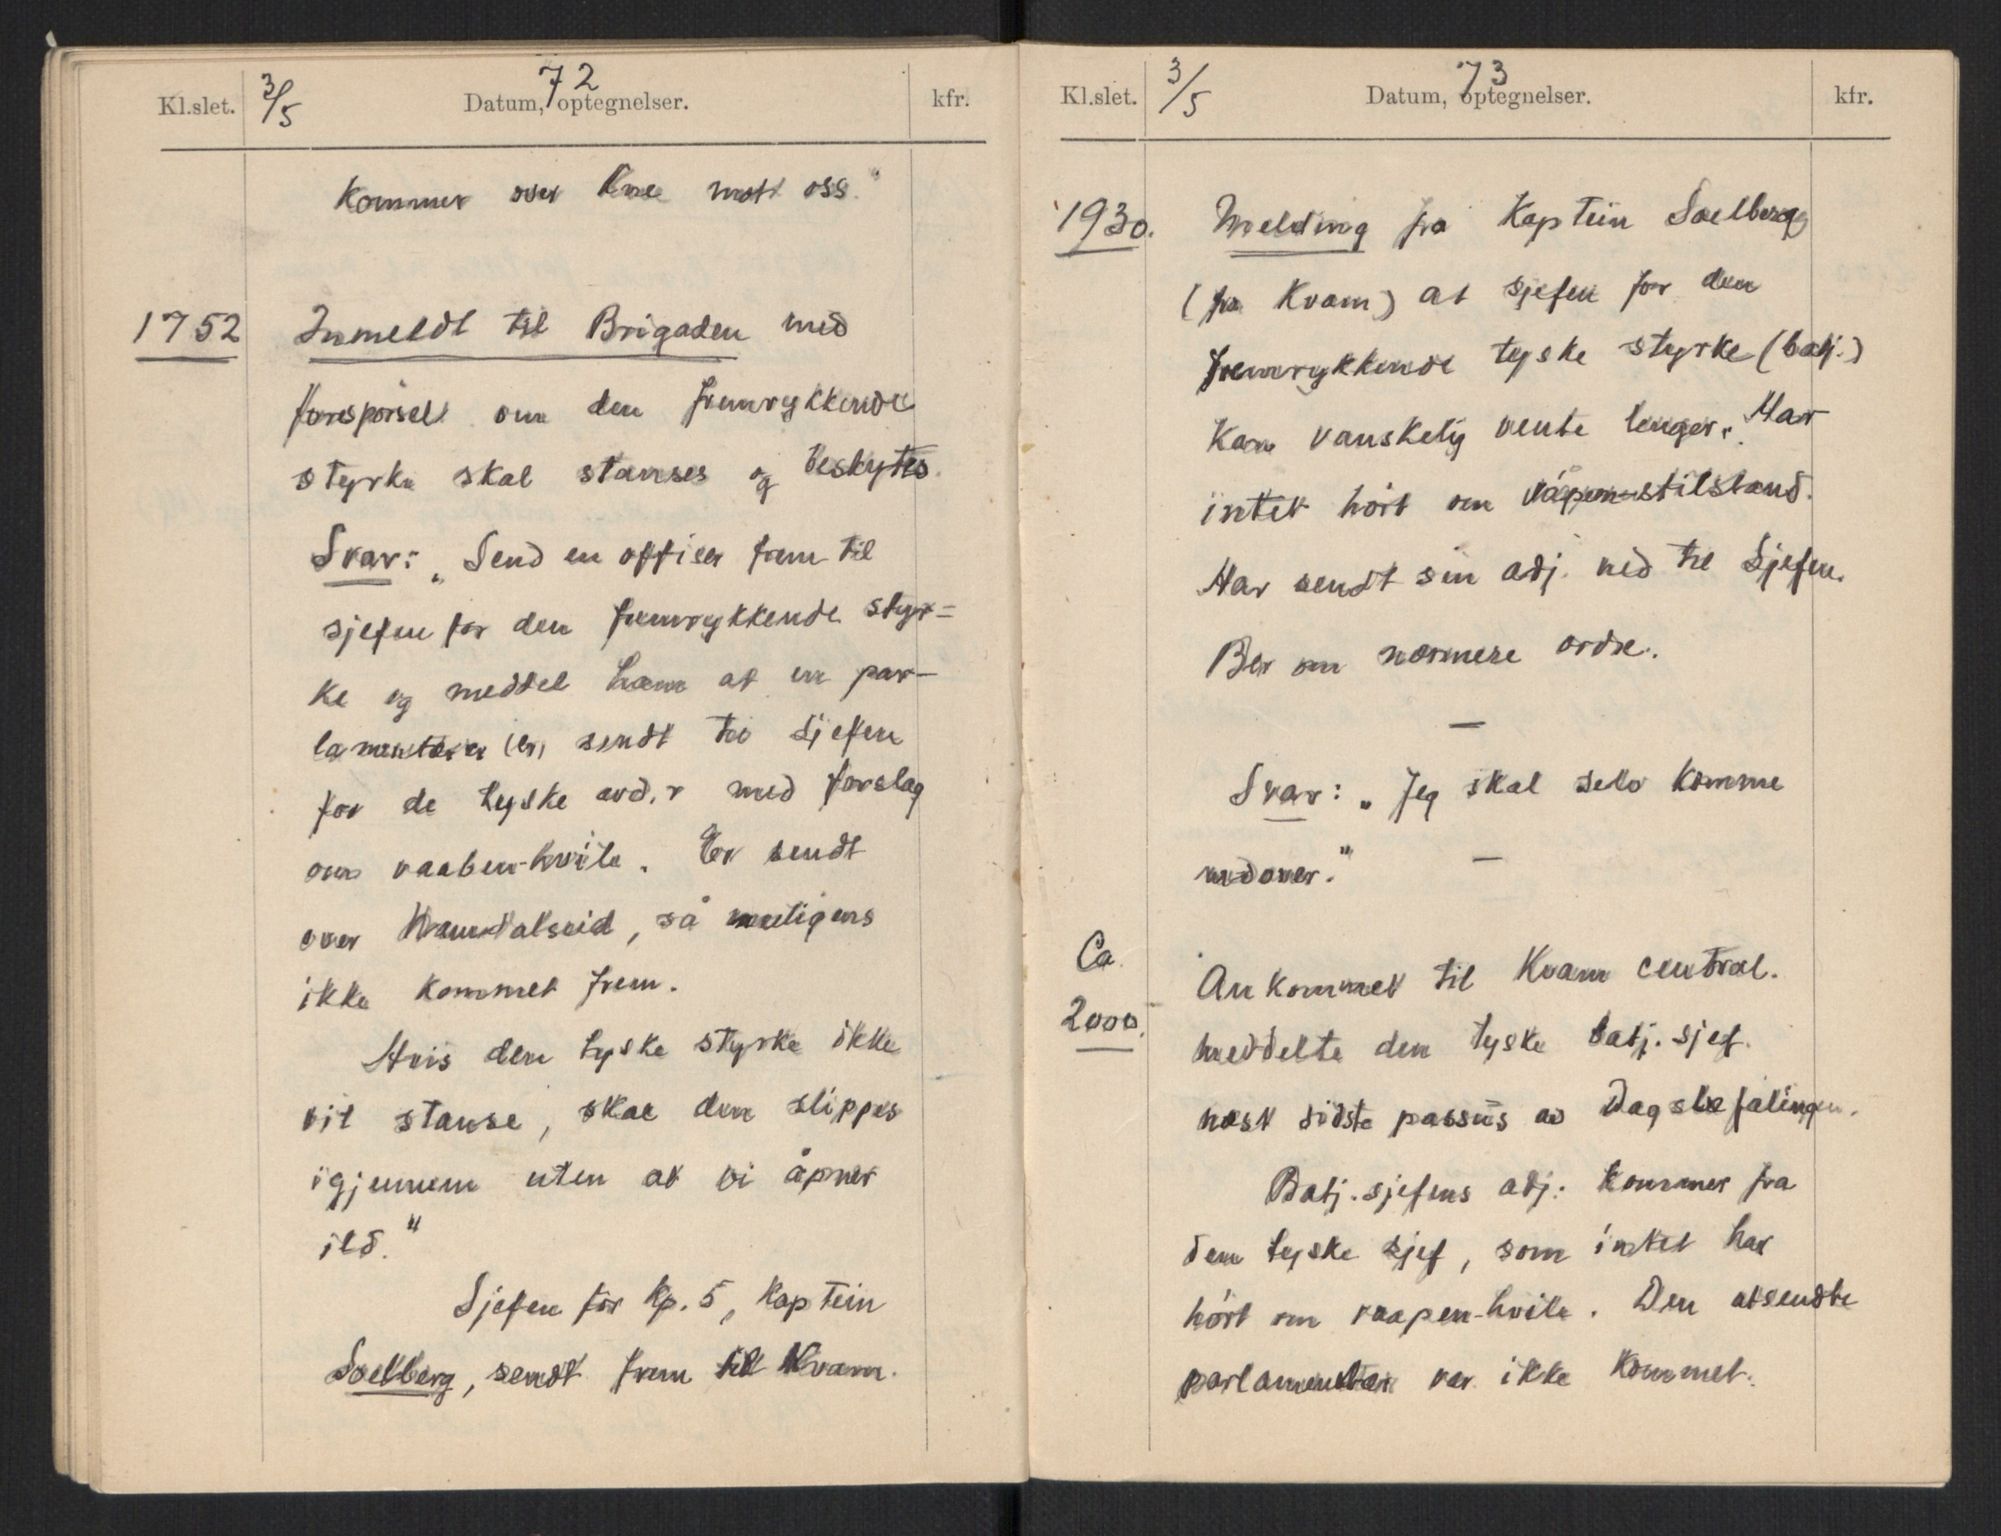 72
Kl.slet. 3/5 Datum, optegnelser. kfr.
kommer over mot oss."
1752 Inmeldt til Brigaden med
forespørsel om den fremrykkende
styrke skal stanses og beskytes.
Svar: „Send en offiser frem til
sjefen for den fremrykkende styr=
ke og meddel ham at en par-
lamentær er sendt til sjefen
for de tyske avd.r med forslag
om vaaben-hvile. Er sendt
over Namdalseid, så muligens
ikke kommet frem.
Hvis den tyske styrke ikke
vil stanse, skal den slippes
igjennem uten at vi åpner
ild."
Sjefen for Kp. 5, Kaptein
Soelberg, sendt frem til Kvam.
73
Kl.slet. 3/5 Datum, optegnelser. kfr.
1930. Melding fra Kaptein Soelberg
(fra Kvam) at sjefen for den
fremrykkende tyske styrke (batj.)
kan vanskelig vente lenger. Har
intet hørt om våpen-stilstand.
Har sendt sin adj. ned til Sjefen.
Ber om nærmere ordre.
—
Svar: „Jeg skal selv komme
nedover."
—
Ca. Ankommet til Kvam central.
2000. meddelte den tyske batj. sjef.
næst sidste passus av Dagsbefalingen.
Batj. sjefens adj. kommer fra
den tyske sjef, som intet har
hørt om vaapen-hvile. Den utsendte
parlamentær var ikke kommet.